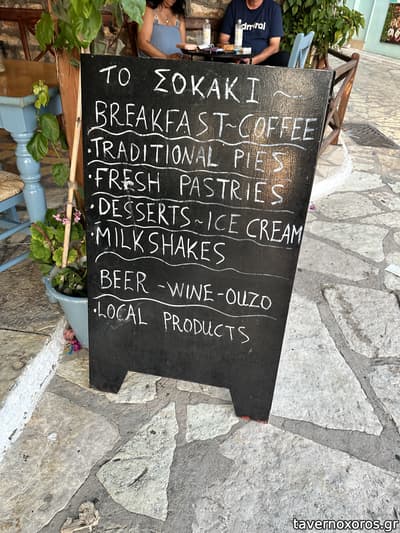 admiral
ΤΟ ΣΟΚΑΚΙ ~
BREAKFAST~COFFEE
·TRADITIONAL PIES
·FRESH PASTRIES
·DESSERTS~ICE CREAM
·MILKSHAKES
BEER-WINE-OUZO
·LOCAL PRODUCTS
tavernoxoros.gr